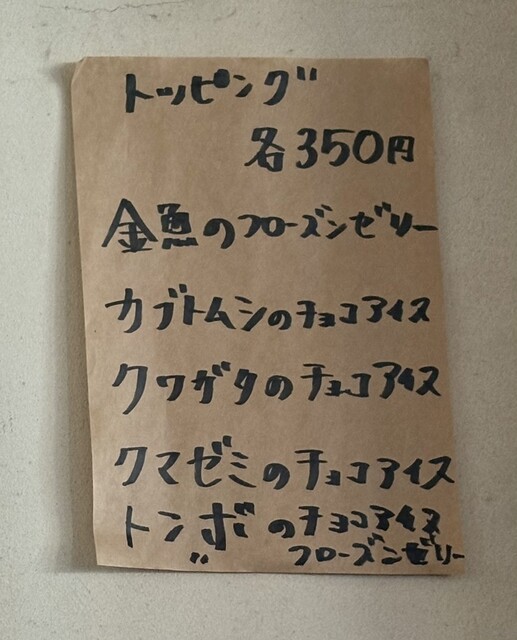 トッピング
各350円
金魚のフローズンゼリー
カブトムシのチョコアイス
クワガタのチョコアイス
クマゼミのチョコアイス
トンボのチョコアイス
フローズンゼリー